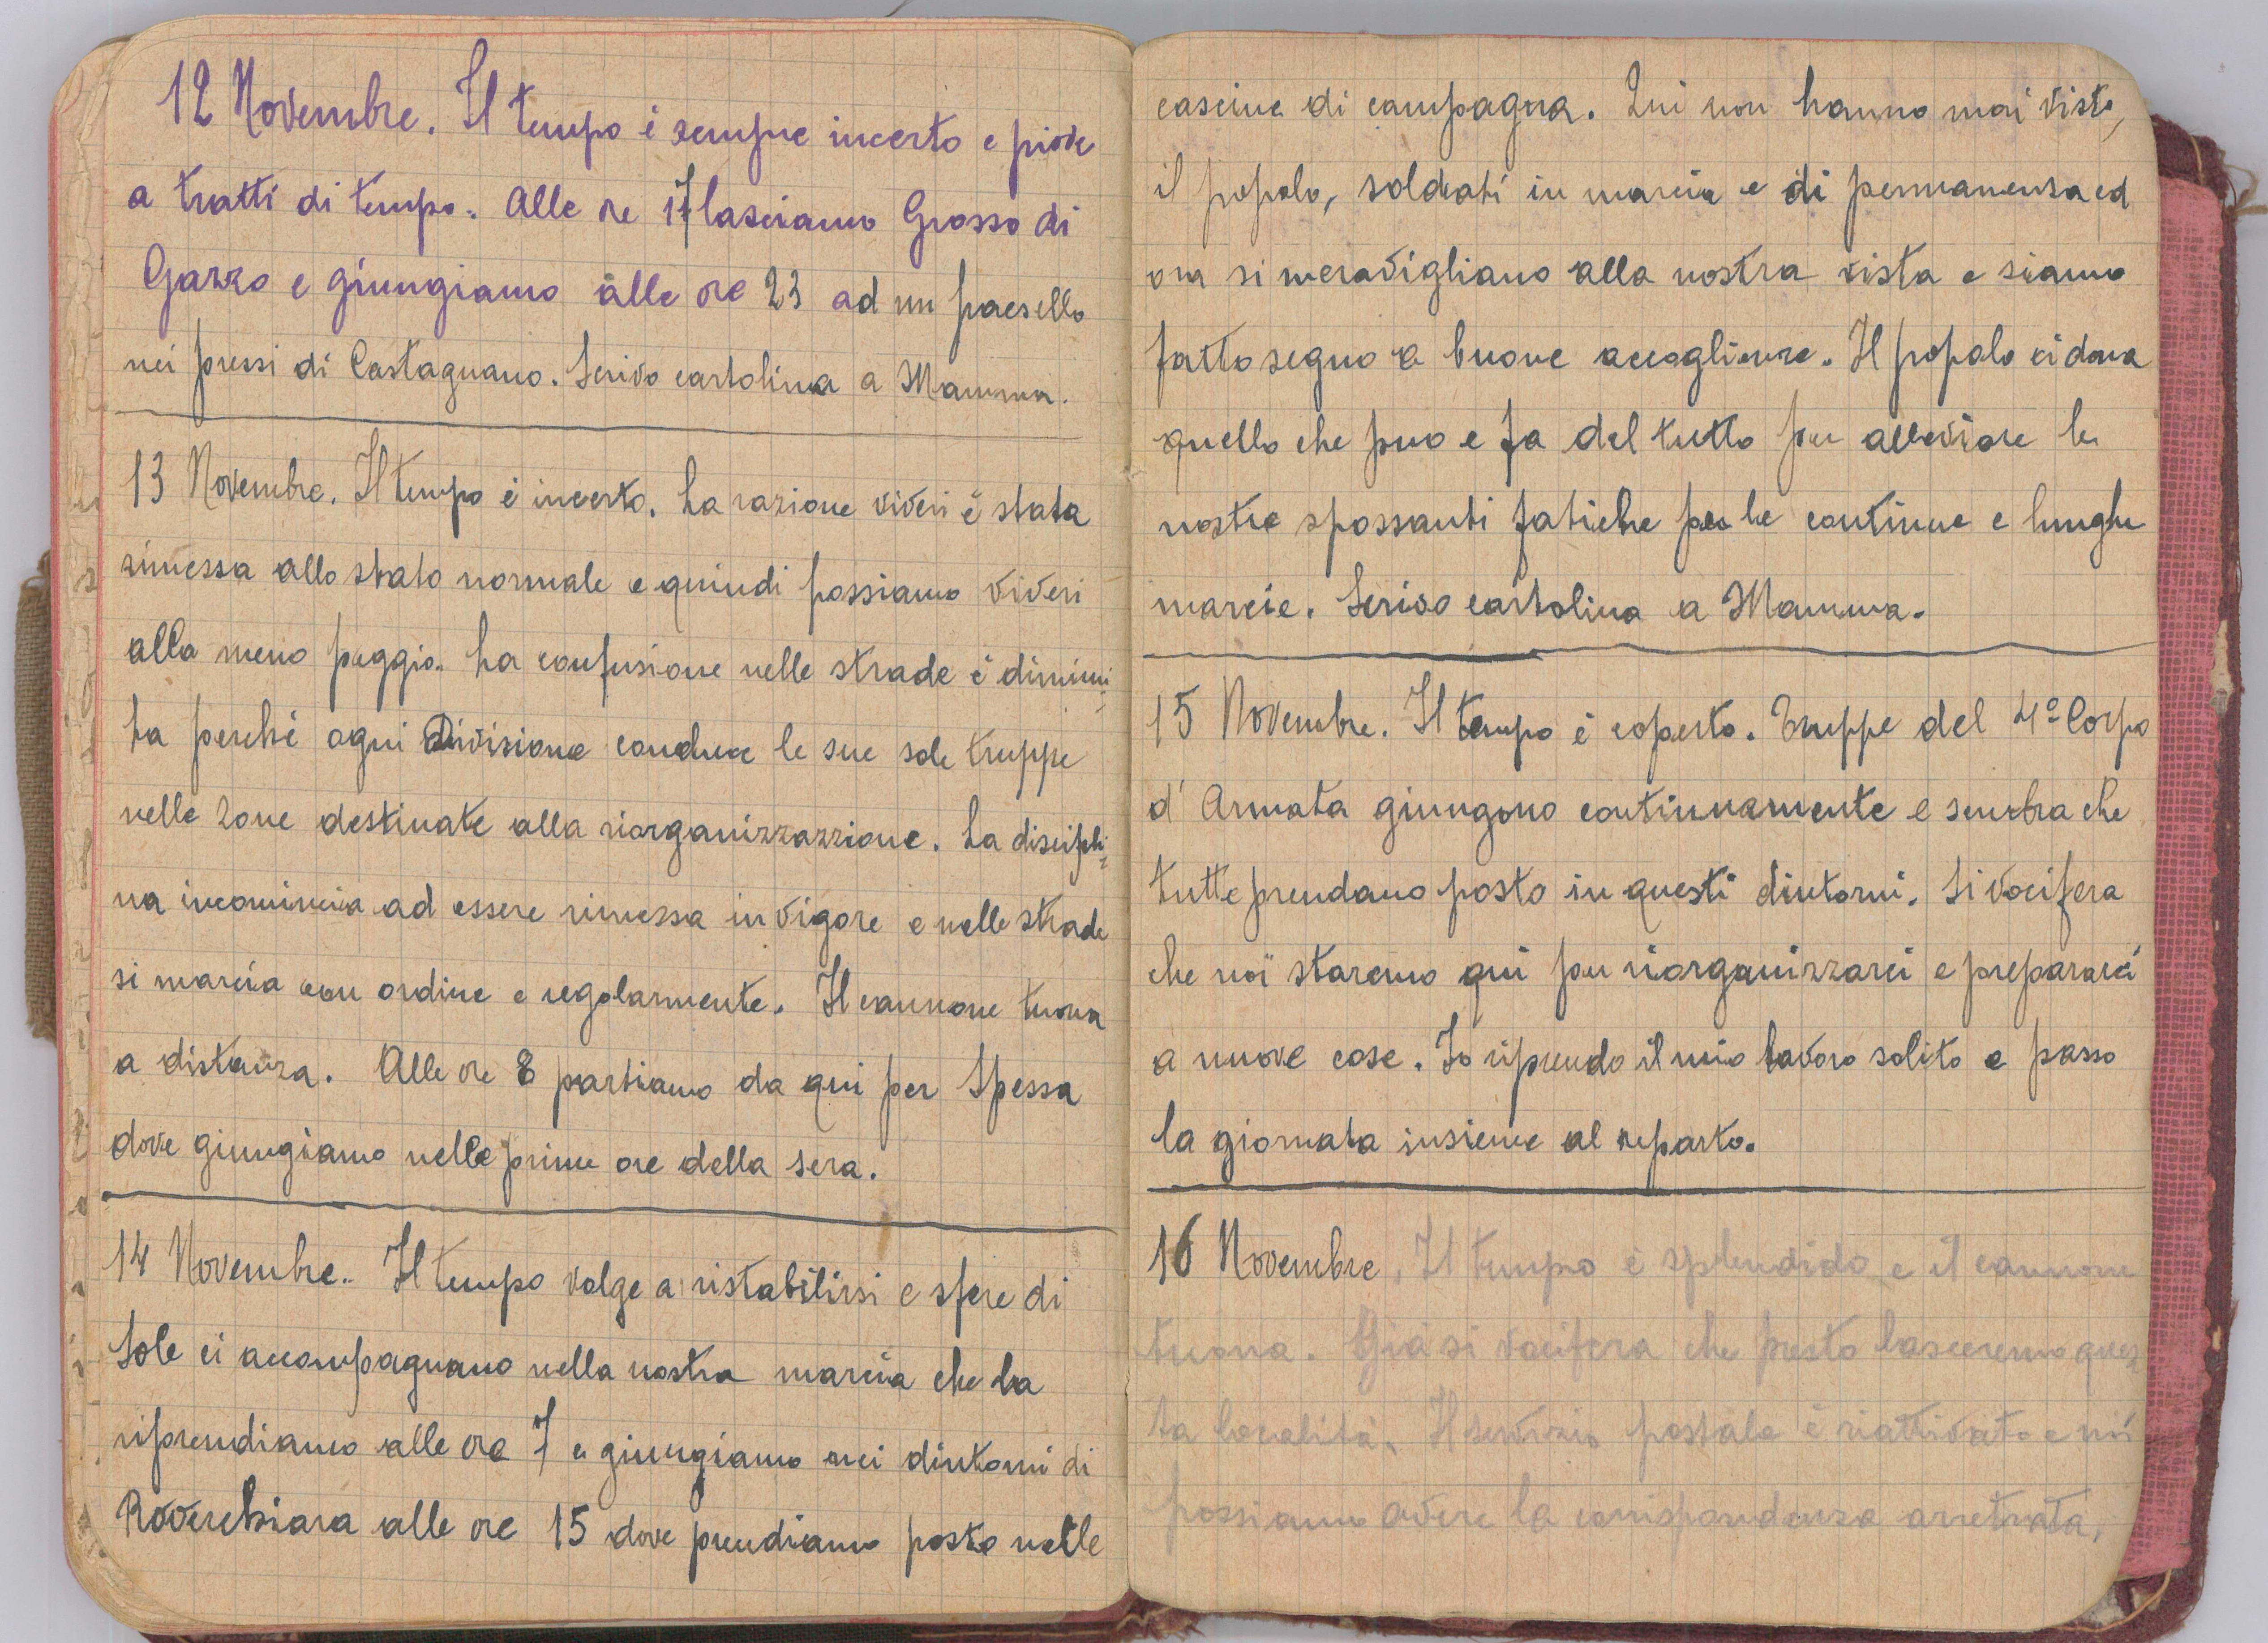 12 Novembre. Il tempo è sempre incerto e piove
a tratti di tempo. Alle ore 17 lasciamo Grosso di
Gazzo e giungiamo alle ore 23 ad un paesello
nei pressi di Castagnano. Scrivo cartolina a Mamma.
13 Novembre. Il tempo è incerto. La razione viveri è stata
rimessa allo stato normale e quindi possiamo viveri
alla meno peggio. La confusione nelle strade è diminui=
ta perché ogni Divisione conduce le sue sole truppe
nelle zone destinate alla riorganizzazzione. La discipli=
na incomincia ad essere rimessa in vigore e nelle strade
si marcia con ordine e regolarmente. Il cannone tuona
a distanza. Alle ore 8 partiamo da qui per Spessa
dove giungiamo nelle prime ore della sera.
14 Novembre. Il tempo volge a ristabilirsi e sfere di
Sole ci accompagnano nella nostra marcia che la
riprendiamo alle ore 7 e giungiamo nei dintorni di
Roverchiara alle ore 15 dove prendiamo posto nelle
cascine di campagna. Qui non hanno mai visto,
il popolo, soldati in marcia e di permanenza ed
ora si meravigliano alla nostra vista e siamo
fatto segno a buone accoglienze. Il popolo ci dona
quello che puo e fa del tutto per alleviare le
nostre spossanti fatiche per le continue e lunghe
marcie. Scrivo cartolina a Mamma.
15 Novembre. Il tempo è coperto. Truppe del 4º Corpo
d' Armata giungono continuamente e sembra che
tutte prendano posto in questi dintorni. Si vocifera
che noi staremo qui per riorganizzarci e prepararci
a nuove cose. Io riprendo il mio lavoro solito e passo
la giornata insieme al reparto.
16 Novembre. Il tempo è splendido e il cannone
tuona. Già si vocifera che presto lasceremo ques=
ta località. Il servizio postale è riattivato e noi
possiamo avere la corrispondenza arretrata,